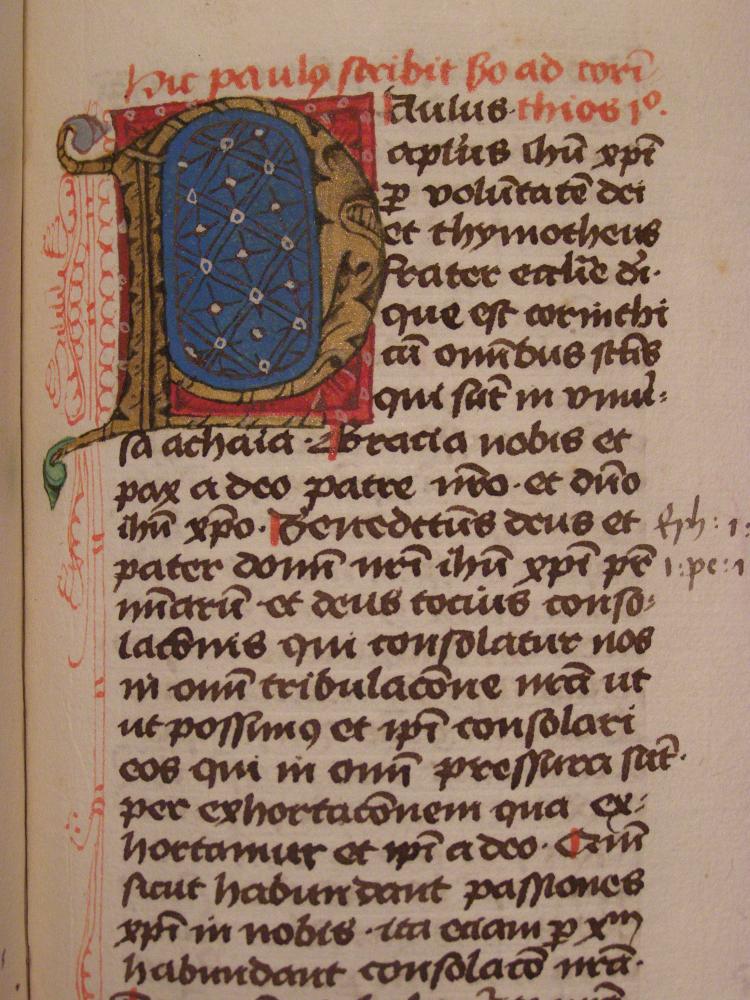 hic paulꝯ scribit bo ad cori
Paulus thios 1º.
aplus ihū xpī
ꝑ volūtatē dei
et thymotheus
frater ecclīe dī·
que est corinthi
cū omībus sctīs
qui sūt in vniul:
sa achaia· Gracia nobis et
pax a deo patre nr̄o· et dn̄o
ihū xp̄o· Benedictūs deus et
pater domī nrī ihū xpī pr̄
mīarū et deus tocius conso:
lacōnis qui consolatur nos
in omī tribulacōne nrā ut
ut possimꝯ et ipī consolari
eos qui in omī pressura sūt·
per exhortacōnem qua ex:
hortamur et ipī a deo· Qm̄
sicut habundant passiones
xpī in nobis· ita eciam ꝑ xm̄
habundant consolacō nrā·
Eph: 1:
1: pe: 1